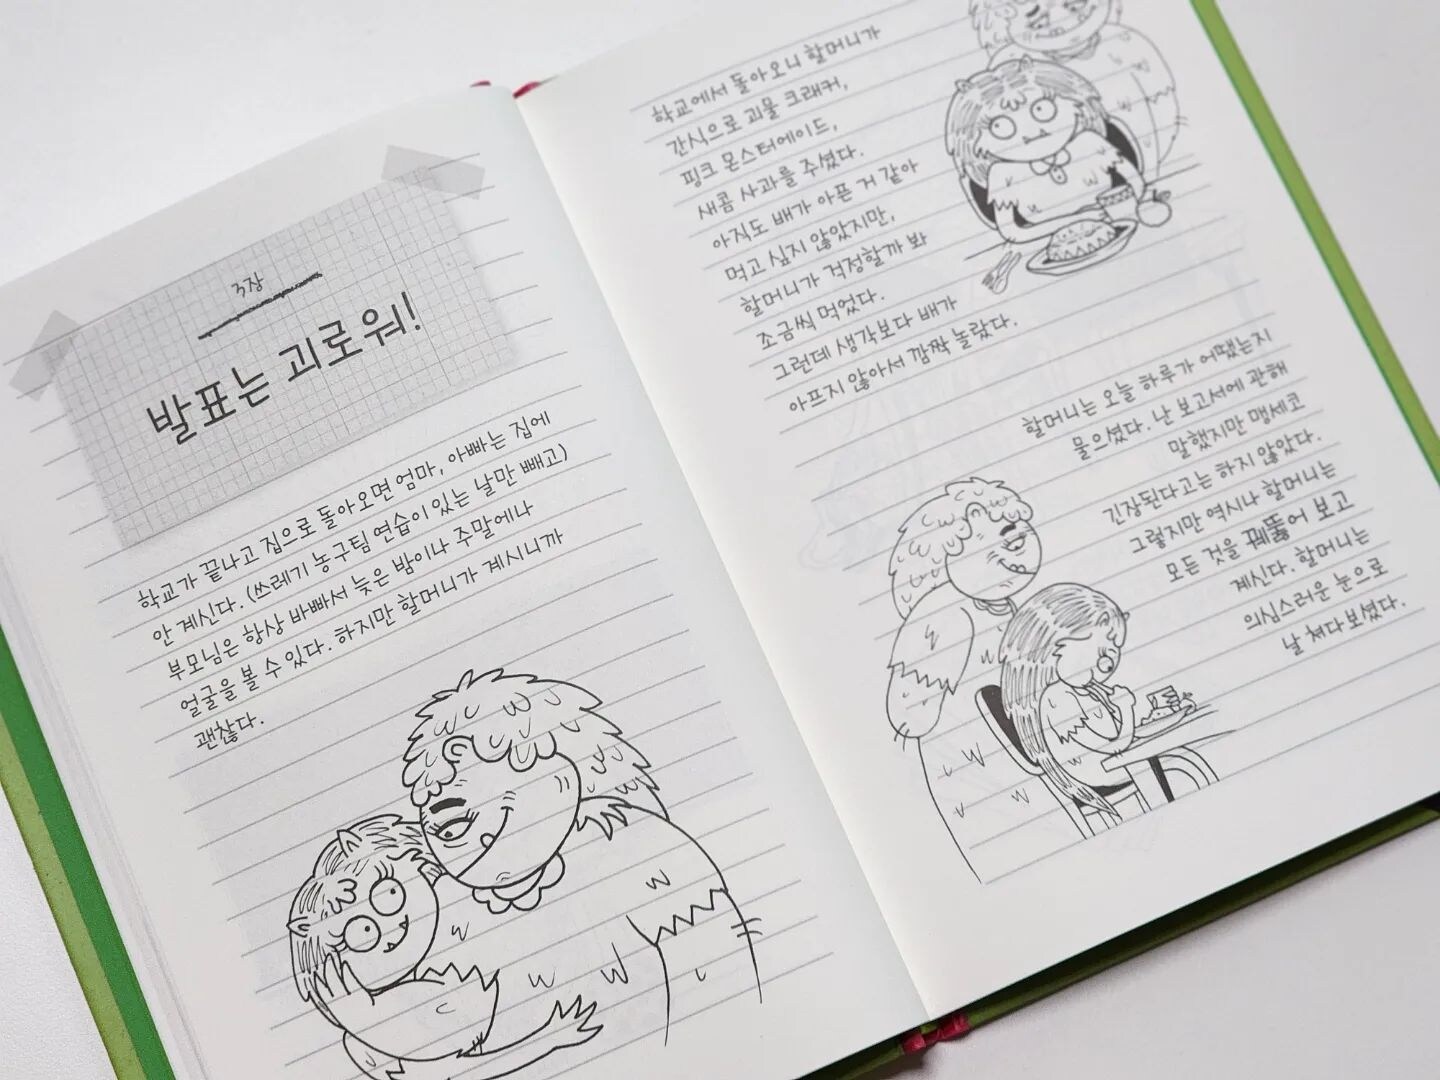 3장
발표는 괴로워!
학교가 끝나고 집으로 돌아오면 엄마, 아빠는 집에
안 계신다. (쓰레기 농구팀 연습이 있는 날만 빼고)
부모님은 항상 바빠서 늦은 밤이나 주말에나
얼굴을 볼 수 있다. 하지만 할머니가 계시니까
괜찮다.
학교에서 돌아오니 할머니가
간식으로 괴물 크래커,
핑크 몬스터에이드,
새콤 사과를 주셨다.
아직도 배가 아픈 거 같아
먹고 싶지 않았지만,
할머니가 걱정할까 봐
조금씩 먹었다.
그런데 생각보다 배가
아프지 않아서 깜짝 놀랐다.
할머니는 오늘 하루가 어땠는지
물으셨다. 난 보고서에 관해
말했지만 맹세코
긴장된다고는 하지 않았다.
그렇지만 역시나 할머니는
모든 것을 꿰뚫어 보고
계신다. 할머니는
의심스러운 눈으로
날 쳐다보셨다.